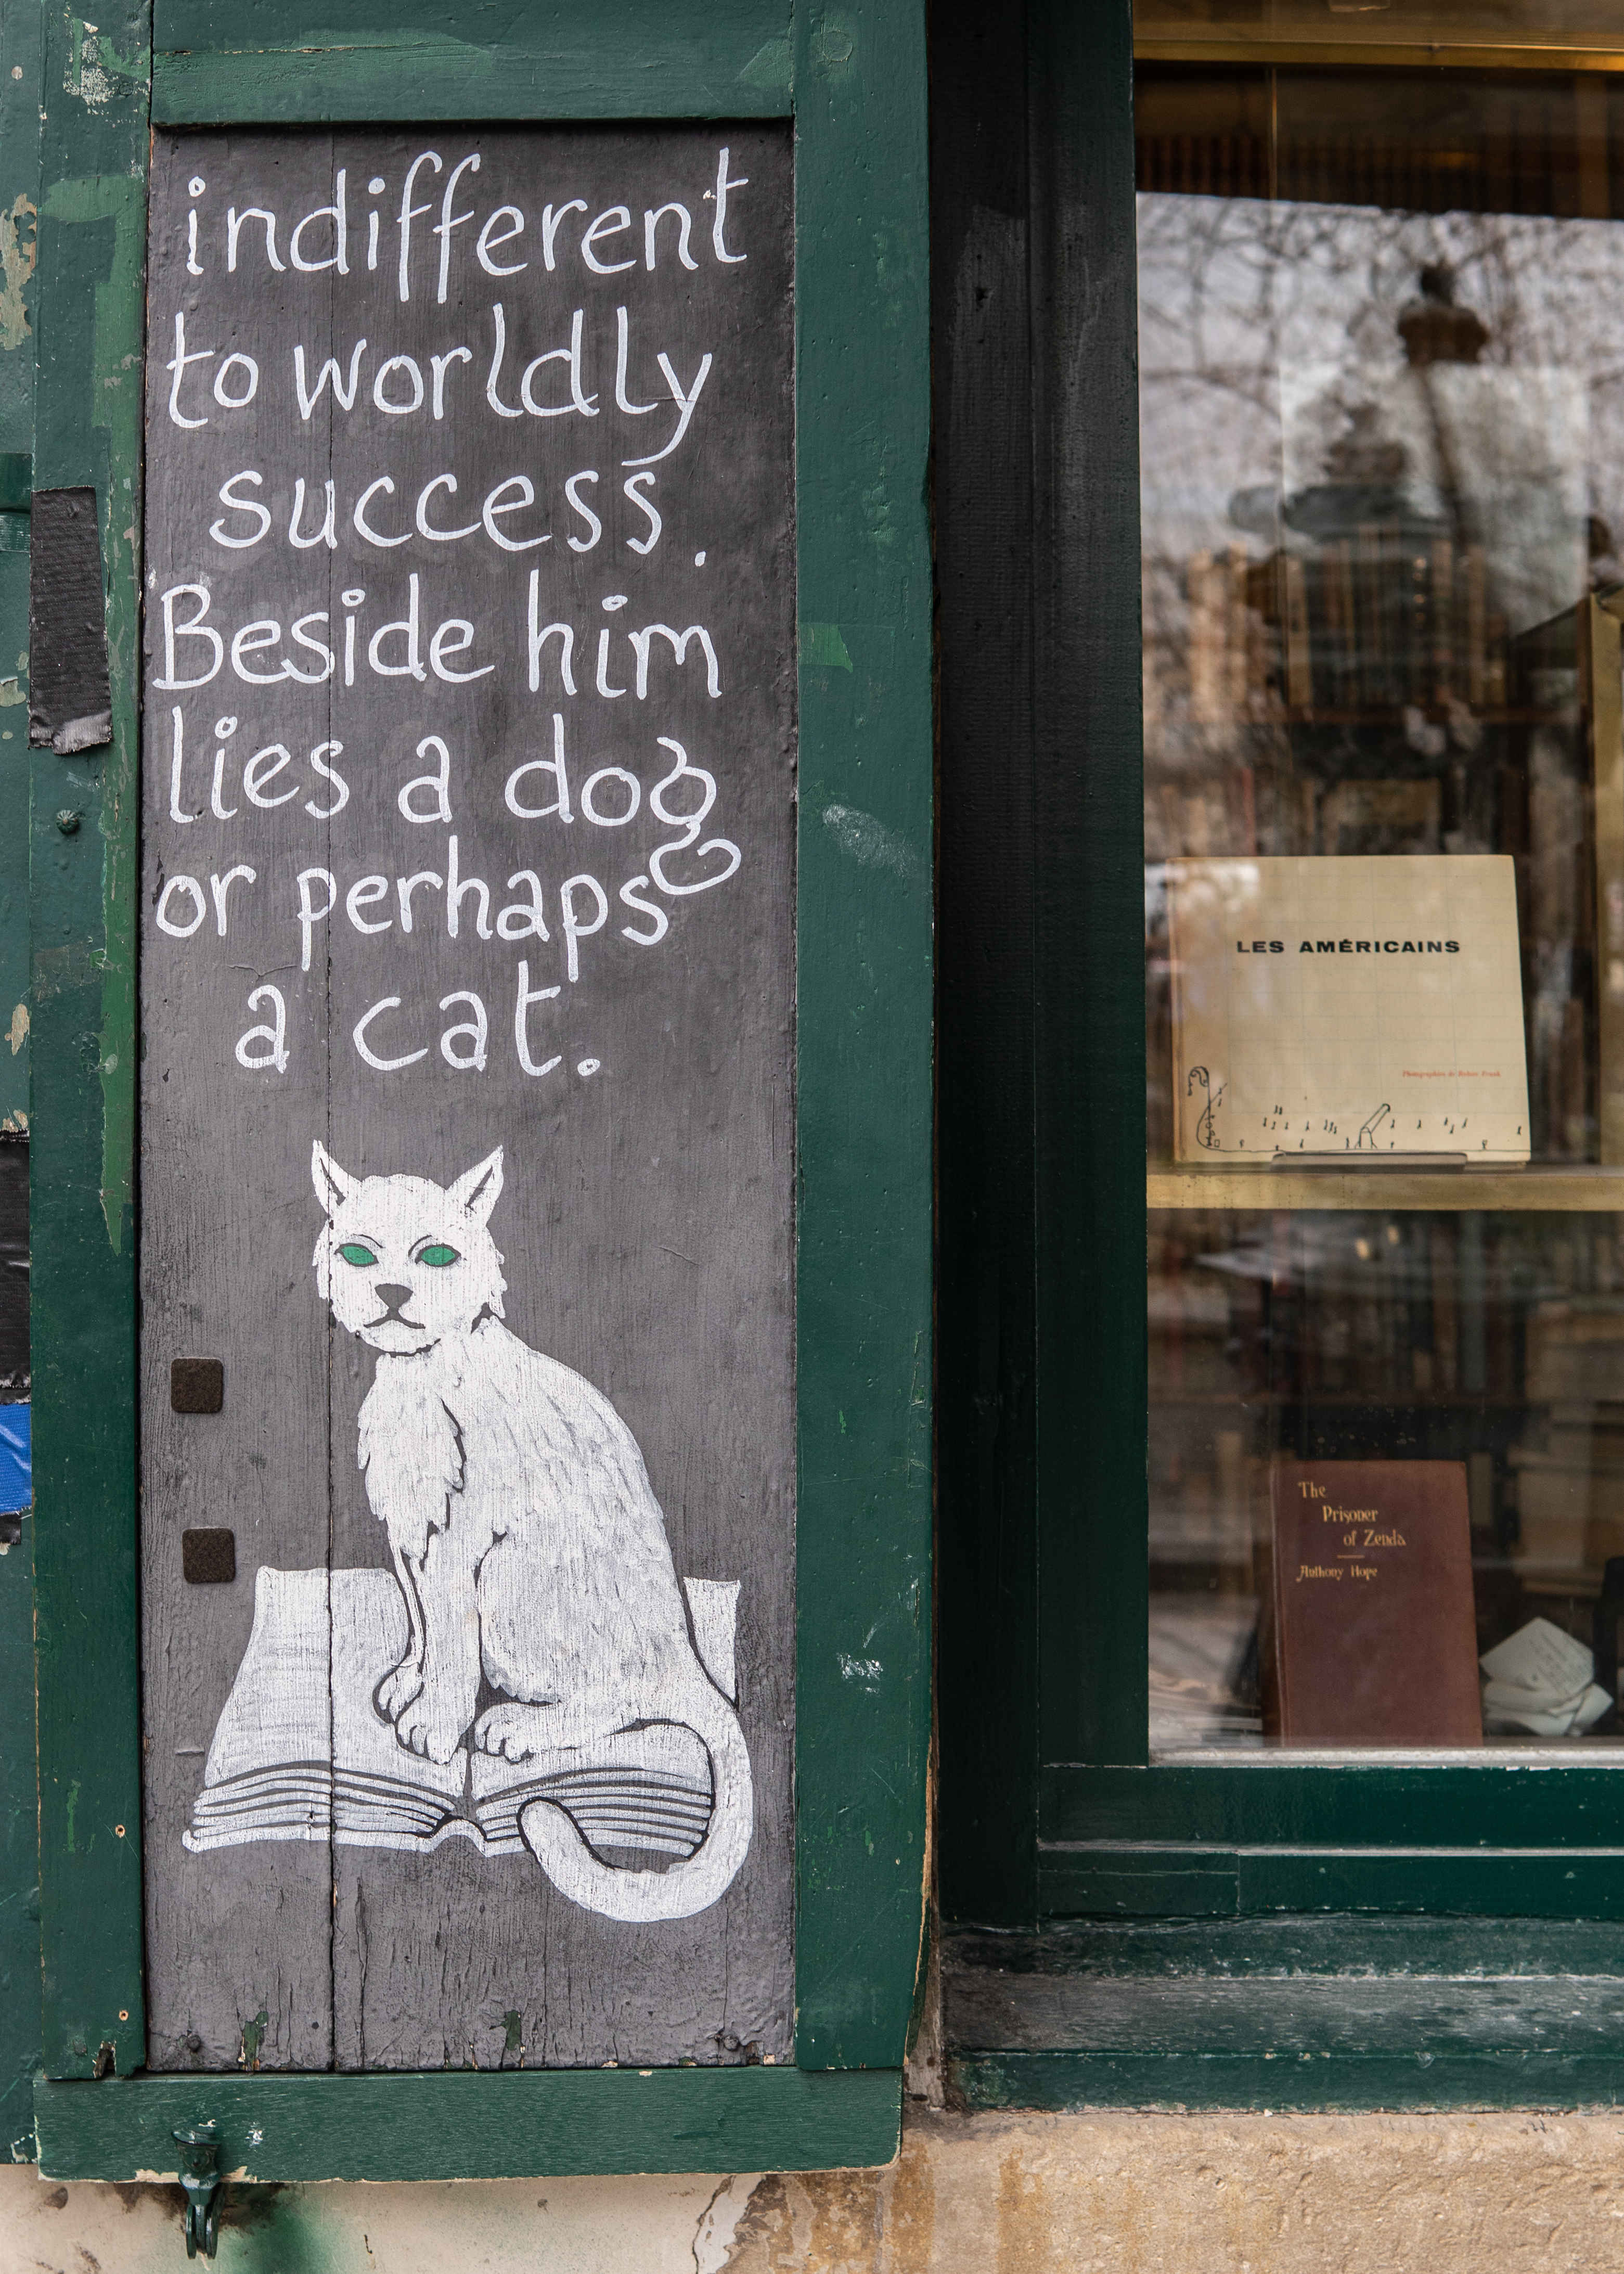 indifferent
to worldly
success.
Beside him
lies a dog
or perhaps
a cat.
LES AMÉRICAINS
Photographies de Robert Frank
The
Prisoner
of Zenda
Anthony Hope